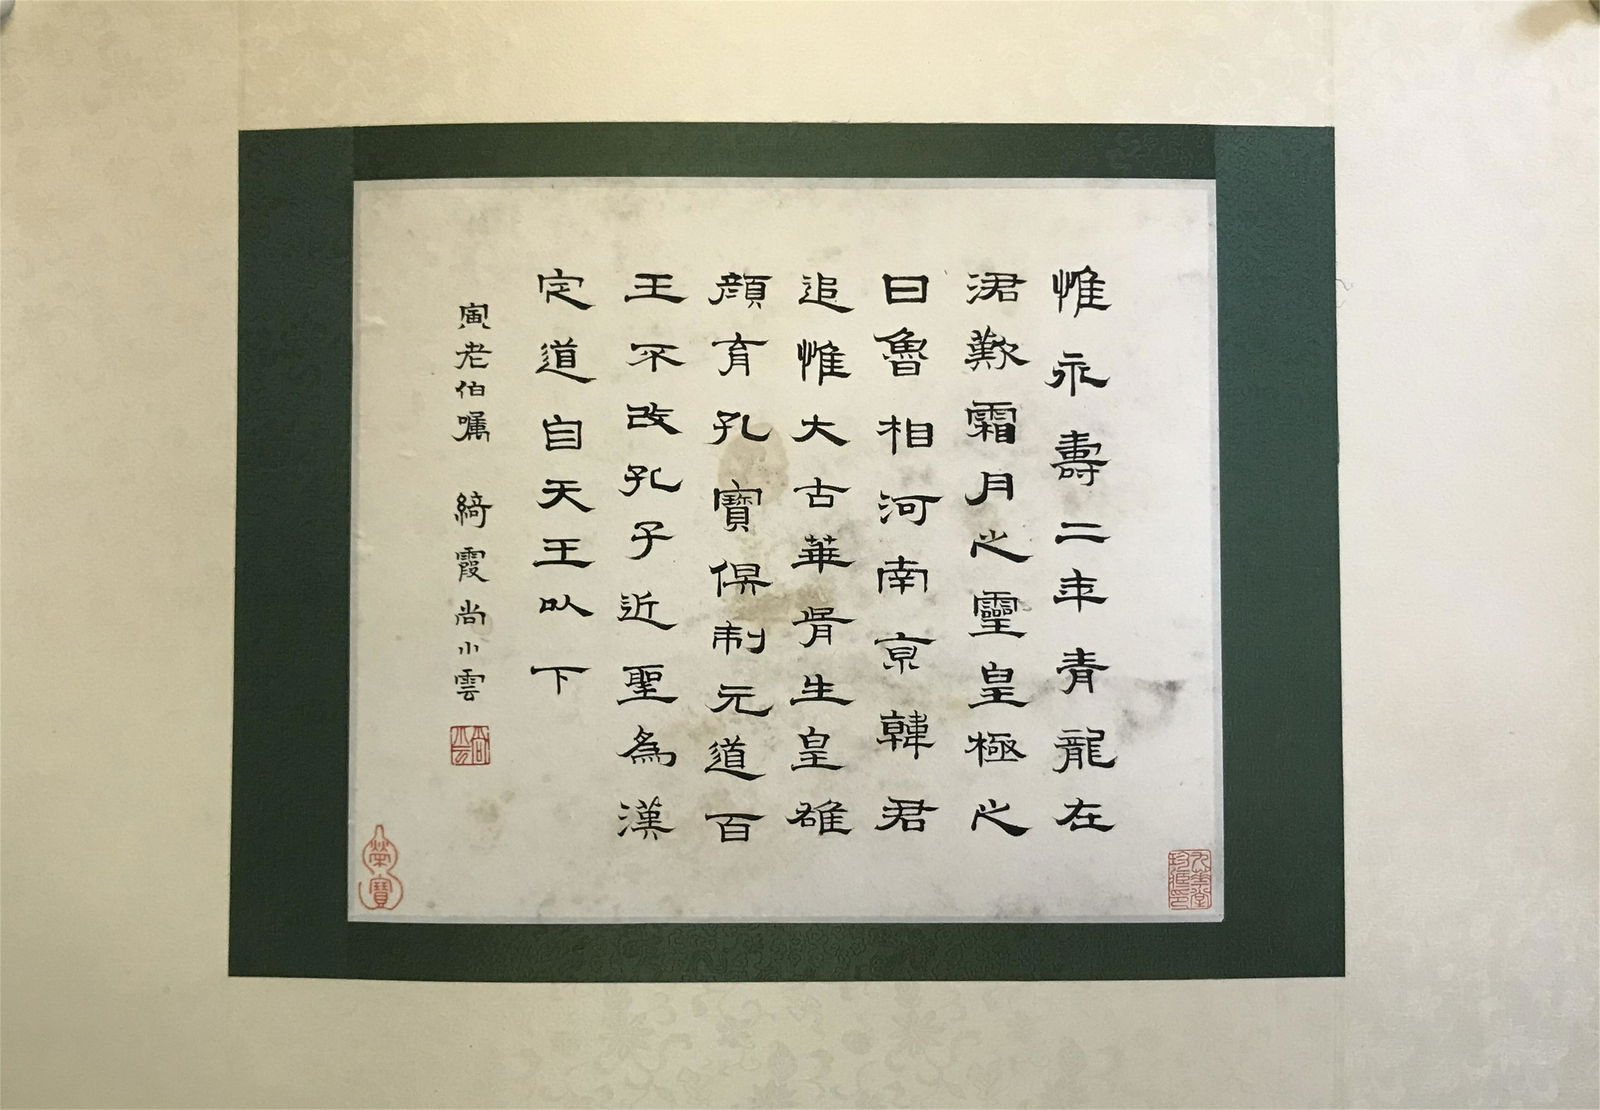 惟永壽二年青龍在
涒歎霜月之靈皇極之
日魯相河南京韓君
追惟大古華胥生皇雄
顏育孔寶俱制元道百
王不改孔子近聖為漢
定道自天王以下
寅老伯嘱 綺霞尚小雲
尚小云
榮寶